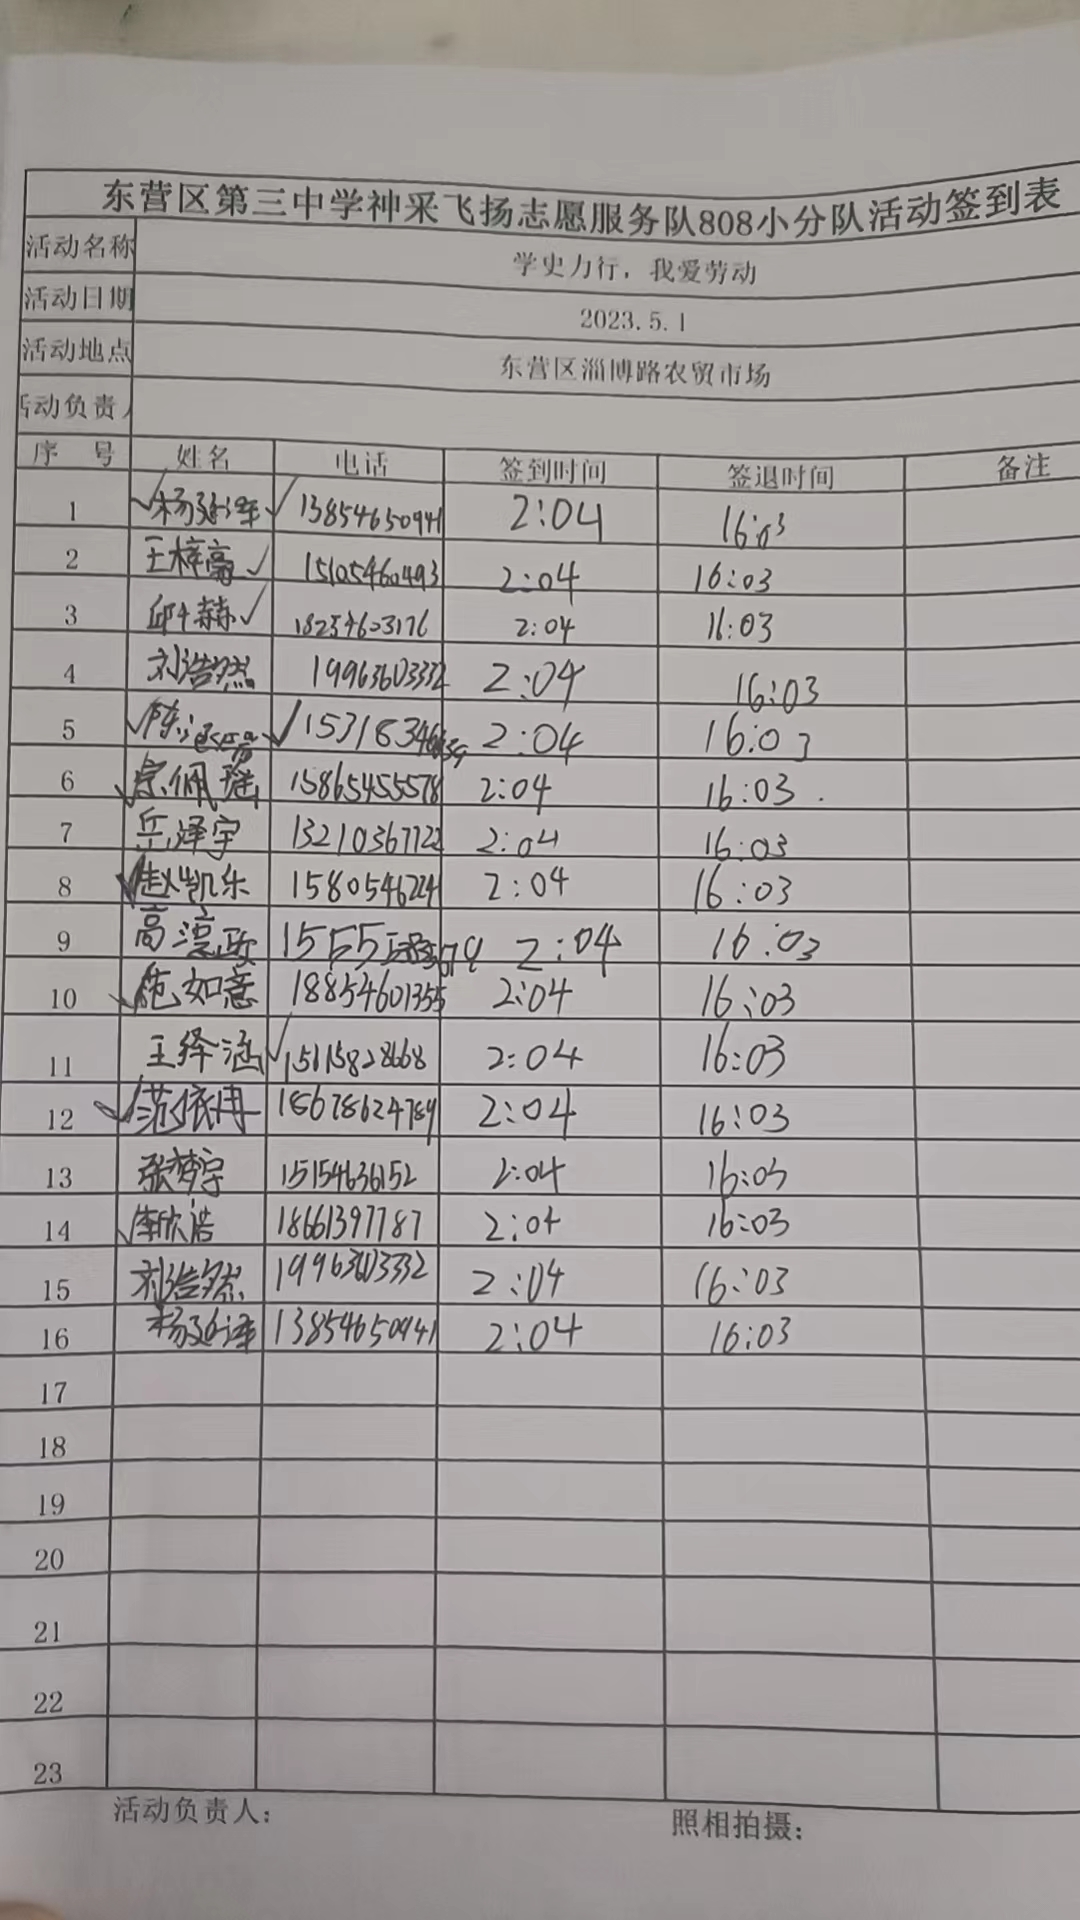 东营区第三中学神采飞扬志愿服务队808小分队活动签到表
活动名称 学史力行，我爱劳动
活动日期 2023.5.1
活动地点 东营区淄博路农贸市场
活动负责人
序 号 姓名 电话 签到时间 签退时间 备注
1 杨延泽 13854650941 2:04 16:03
2 王梓豪 15105460493 2:04 16:03
3 邱千赫 18254603176 2:04 16:03
4 刘浩然 19963603332 2:04 16:03
5 2:04 16:03
6 宗佩瑶 15865455578 2:04 16:03
7 岳泽宇 13210367722 2:04 16:03
8 赵凯乐 2:04 16:03
9 高淳政 2:04 16:03
10 范如意 18854601355 2:04 16:03
11 王绎涵 15615828668 2:04 16:03
12 范依冉 18678624789 2:04 16:03
13 张梦宇 15154636152 2:04 16:03
14 李欣浩 18661397787 2:04 16:03
15 刘浩然 19963603332 2:04 16:03
16 杨延泽 13854650941 2:04 16:03
17
18
19
20
21
22
23
活动负责人： 照相拍摄：